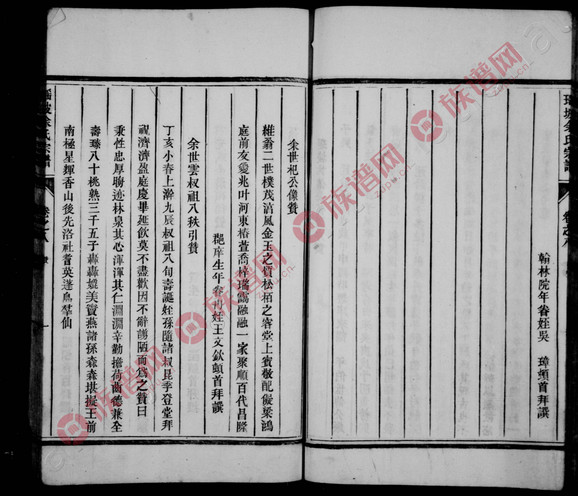 翰林院年眷姪吳 璋頓首拜譔
余世杞公像贊
維翁二世樸茂清風金玉之質松柏之容堂上賓敬配儗梁鴻
庭前友愛兆叶河東椿萱喬梓瑞靄融融一家聚順百代昌隆
年眷 姪王文欽頓首拜譔
余世雲叔祖八秩引贊
丁亥小春上澣九辰叔祖八旬壽誕姪孫隨諸叔昆季登堂拜
祝濟濟盈庭慶畢延飲莫不盡歡因不辭 陋而爲之贊曰
秉性忠厚 迹林泉其心渾渾其仁淵淵辛勤擔荷 德兼全
壽臻八十桃熟三千五子轟轟媲美竇燕諸孫森森堪擬王前
南極星輝香山後先洛社耆英蓬島羣仙
余氏宗譜
卷之八
族谱网